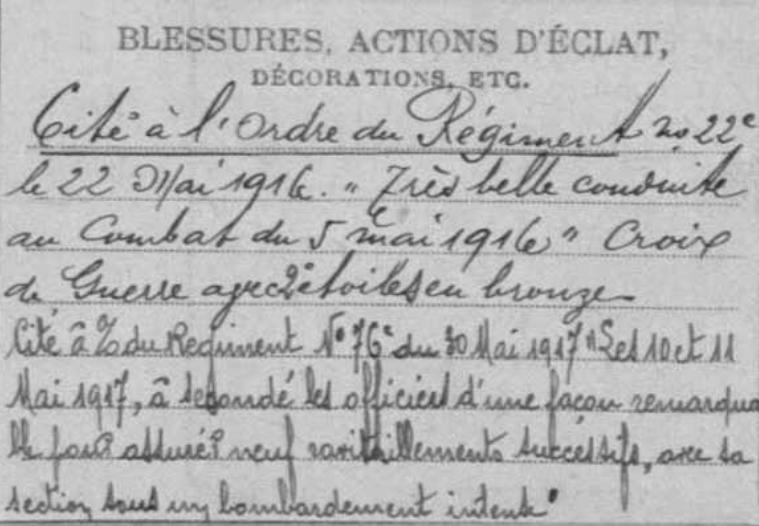 BLESSURES, ACTIONS D'ÉCLAT,
DÉCORATIONS, ETC.
Cité à l'Ordre du Régiment no 22e
le 22 Mai 1916. " Très belle conduite
au Combat du 5 mai 1916 " Croix
de Guerre avec 2 étoiles en bronze
Cité à l'O du Regiment No 76e du 30 Mai 1917 "Les 10 et 11
Mai 1917, à secondé les officiers d'une façon remarqua
ble pour assurer neuf ravitaillements successifs, avec sa
section sous un bombardement intense"